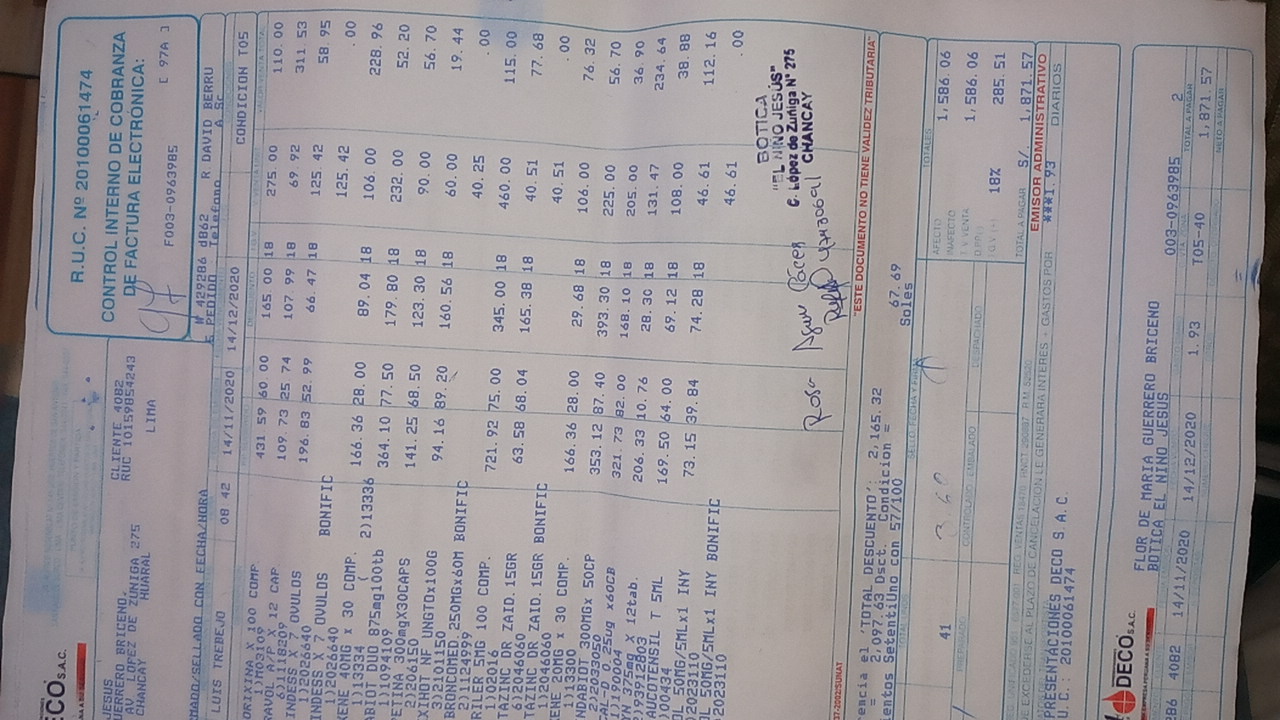 R.U.C. Nº 20100061474
CONTROL INTERNO DE COBRANZA
DE FACTURA ELECTRÓNICA:
F003-0963985 [ 97A ]
DECO S.A.C.
CLIENTE 4082
RUC 10159854243
LIMA
JESUS
GUERRERO BRICENO,
AV LOPEZ DE ZUNIGA 275
CHANCAY HUARAL
N 429286 dB62 R DAVID BERRU
PEDIDO Telefono
LUIS TREBEJO 08 42 14/11/2020 14/12/2020 CONDICION T05
ORIXINA X 100 COMP. 431 59 60.00 165.00 18 275.00 110.00
1)M03109
RAVOL A/P X 12 CAP 109 73 25 74 107 99 18 69 92 311 53
6)1118209
INDESS X 7 OVULOS 196.83 52.99 66.47 18 125.42 58.95
1)2026640
INDESS X 7 OVULOS BONIFIC 125.42 .00
1)2026640
XENE 40MG x 30 COMP. 166.36 28.00 89.04 18 106.00 228.96
1)13334 2)13336
ABIOT DUO 875mg100tb 364.10 77.50 179.80 18 232.00 52.20
1)1094109
PETINA 300mgX30CAPS 141.25 68.50 123.30 18 90.00 56.70
2)2046150
EXIHOT NF UNGTOx100G 94.16 89.20 160.56 18 60.00 19.44
3)2101150
BRONCOMED. 250MGx60M BONIFIC 40.25 .00
2)1124599
RILER 5MG 100 COMP. 721.92 75.00 345.00 18 460.00 115.00
1)2022016
TAZINC DR ZAID.15GR 63.58 68.04 165.38 18 40.51 77.68
6)2046060
TAZINC DR ZAID.15GR BONIFIC 40.51 .00
1)2046060
XENE 20MG x 30 COMP. 166.36 28.00 29.68 18 106.00 76.32
1)13300
NDABIOT 300MGx 50CP 353.12 87.40 393.30 18 225.00 56.70
2)2033050
CAL-D 0.25ug x60CB 321.73 82.00 168.10 18 205.00 36.90
YN 375mg X 12tab. 206.33 10.76 28.30 18 131.47 234.64
AUCOTENSIL T 5ML 169.50 64.00 69.12 18 108.00 38.88
)00434
OL 50MG/5MLx1 INY 73.15 39.84 74.28 18 46.61 112.16
)2023110
OL 50MG/5MLx1 INY BONIFIC 46.61 .00
)2023110
BOTICA
"EL NIÑO JESÚS"
C. López de Zuñiga Nº 275
CHANCAY
Rosa
"ESTE DOCUMENTO NO TIENE VALIDEZ TRIBUTARIA"
rencia el 'TOTAL DESCUENTO': 2,165.32
= 2,097.63 Dsct. Condicion = 67.69
ientos SetentiUno con 57/100 Soles
TOTALES
AFECTO 1,586.06
INAFECTO
T.V VENTA 1,586.06
I.G.V.(+) 18% 285.51
TOTAL A PAGAR S/. 1,871.57
EMISOR ADMINISTRATIVO
41
EMBALADO
DESPACHADO
EXCEDERSE AL PLAZO DE CANCELACION LE GENERARA INTERES + GASTOS POR ***1.93 DIARIOS
PRESENTACIONES DECO S.A.C.
U.C.: 20100061474
DECO S.A.C.
FLOR DE MARIA GUERRERO BRICENO
BOTICA EL NINO JESUS 003-0963985 2
TOTAL A PAGAR
286 4082 14/11/2020 14/12/2020 1.93 T05-40 1,871.57
NETO A PAGAR